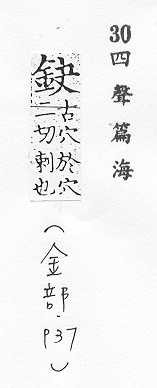 30四聲篇海
鈌
古穴於穴
二切刺也
(金部.P37)